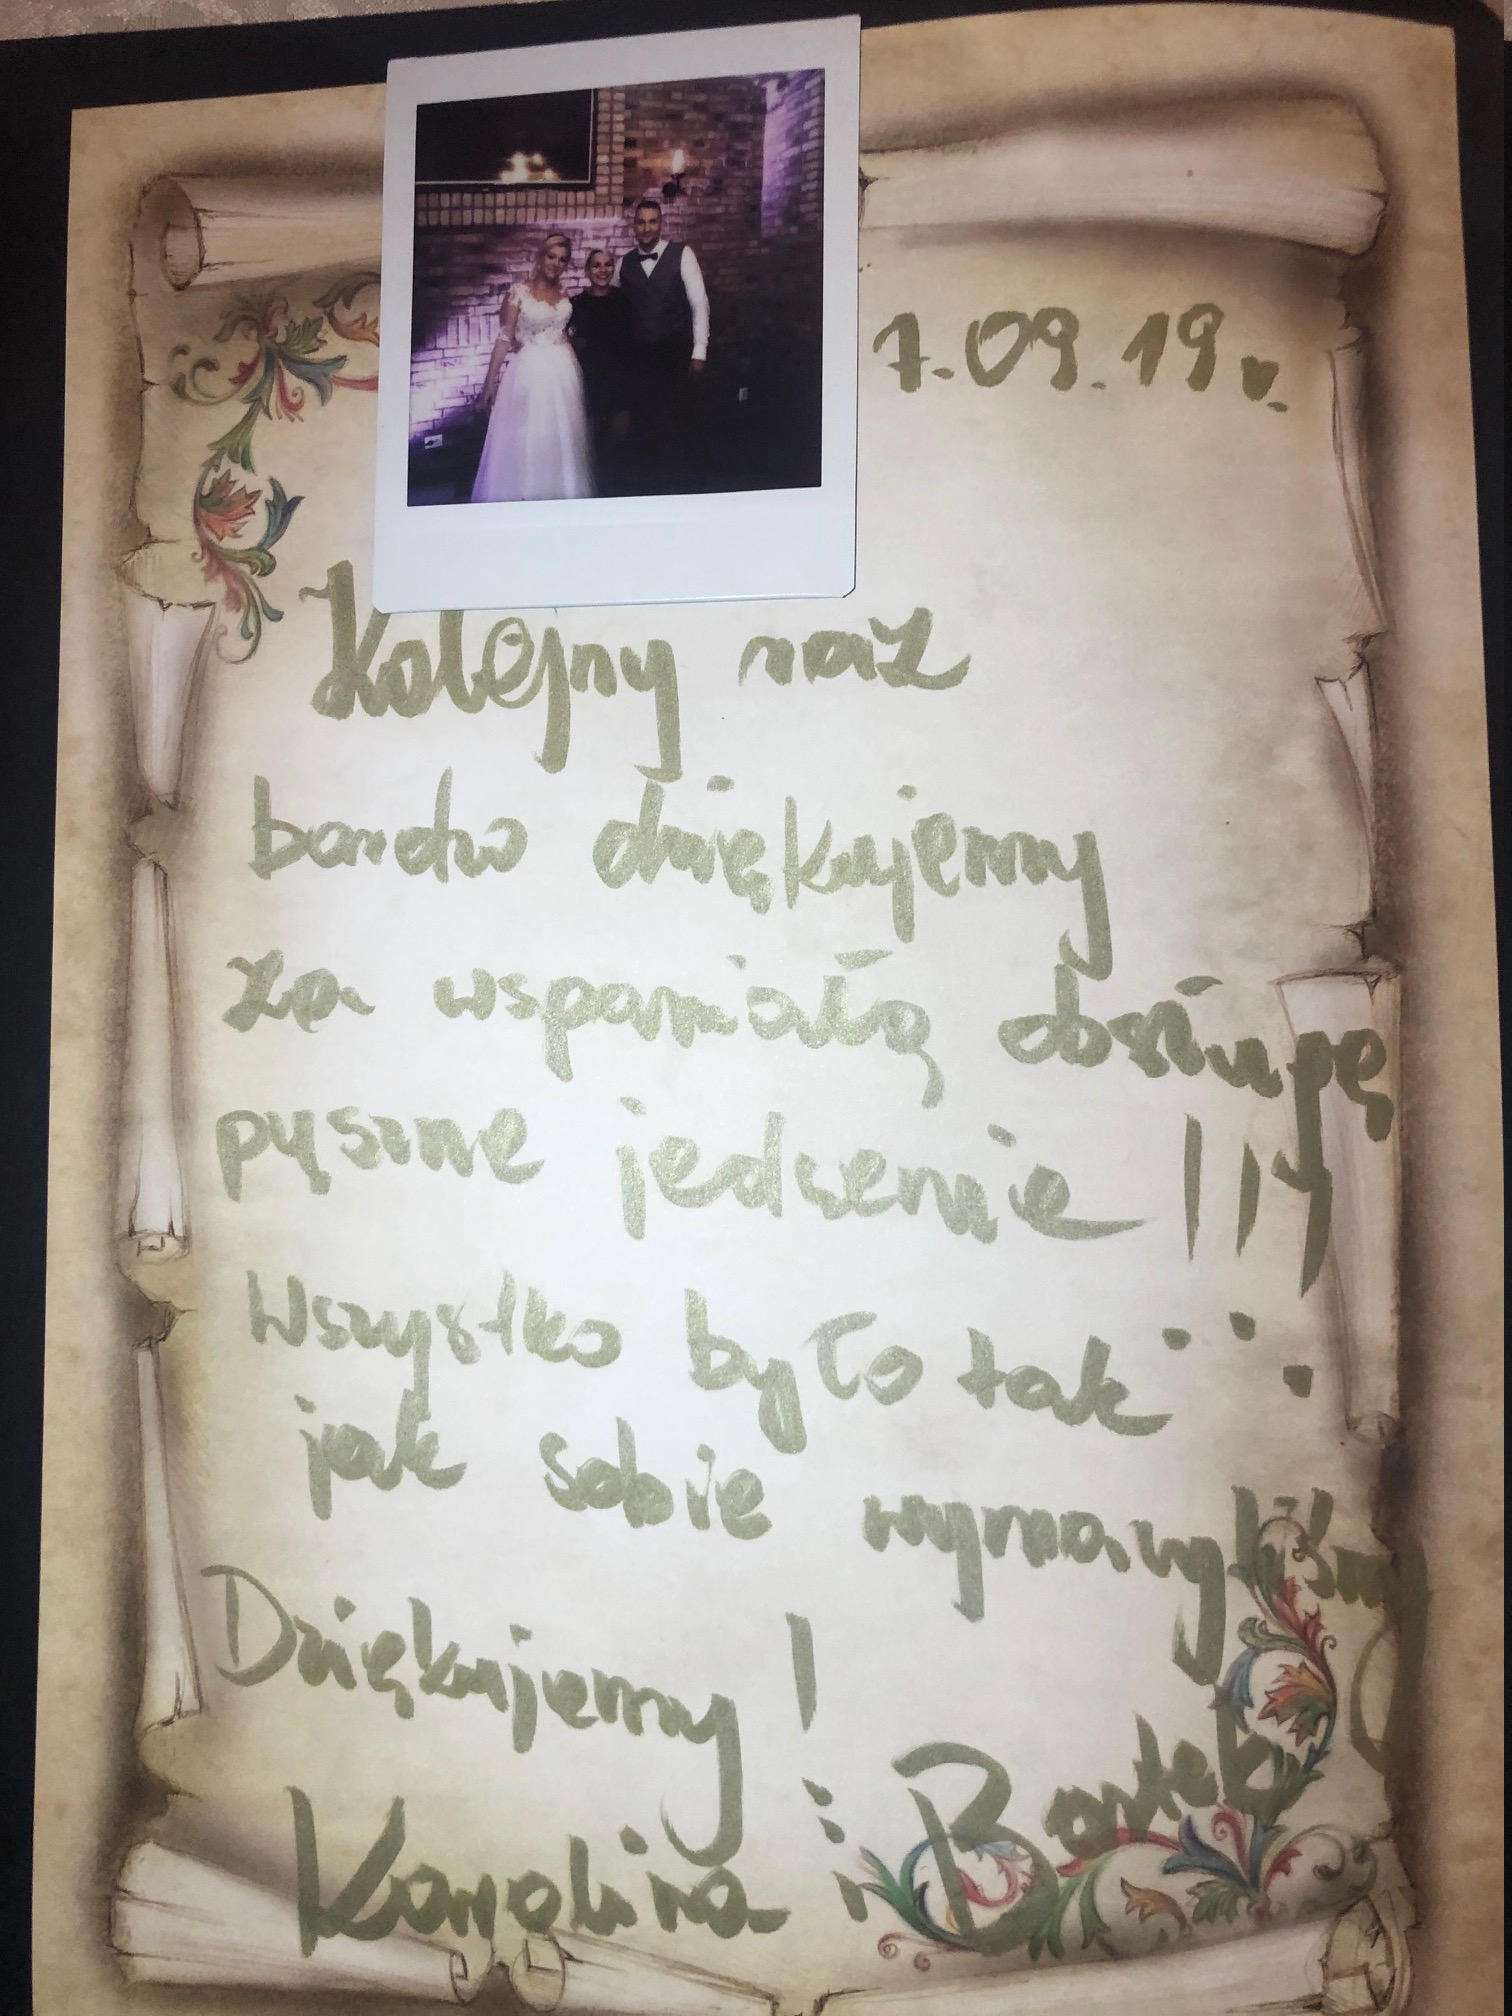 7.09.19 r.
Kolejny raz
bardzo dziękujemy
za wspaniałą obsługę
pyszne jedzenie !!!
Wszystko było tak
jak sobie wymarzyliśmy
Dziękujemy !
Karolina i Bartek